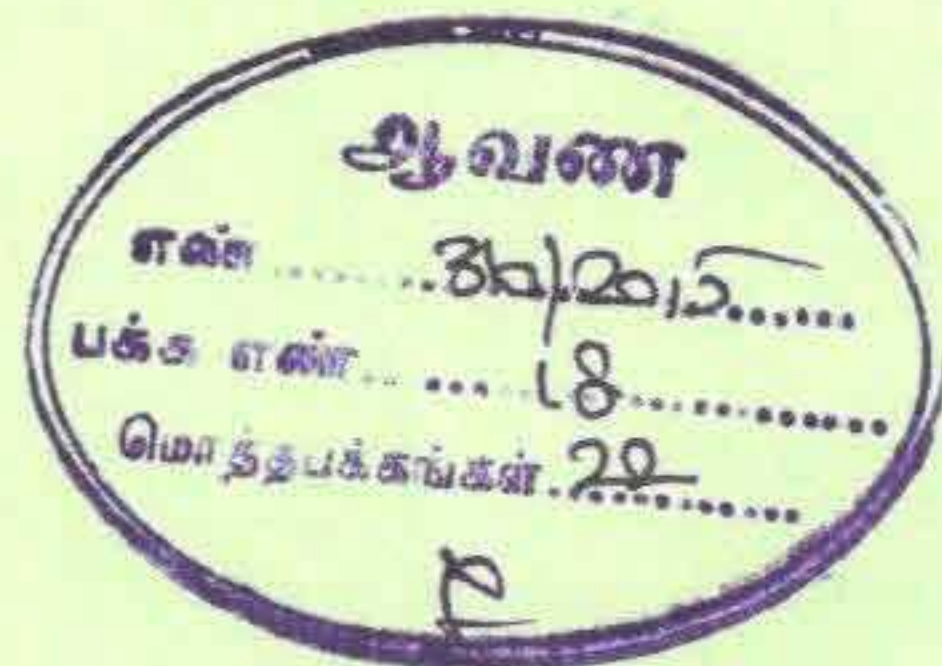 ஆவண
எண் ............/2015......
பக்க எண்... .....18...............
மொத்தபக்கங்கள்.22..........